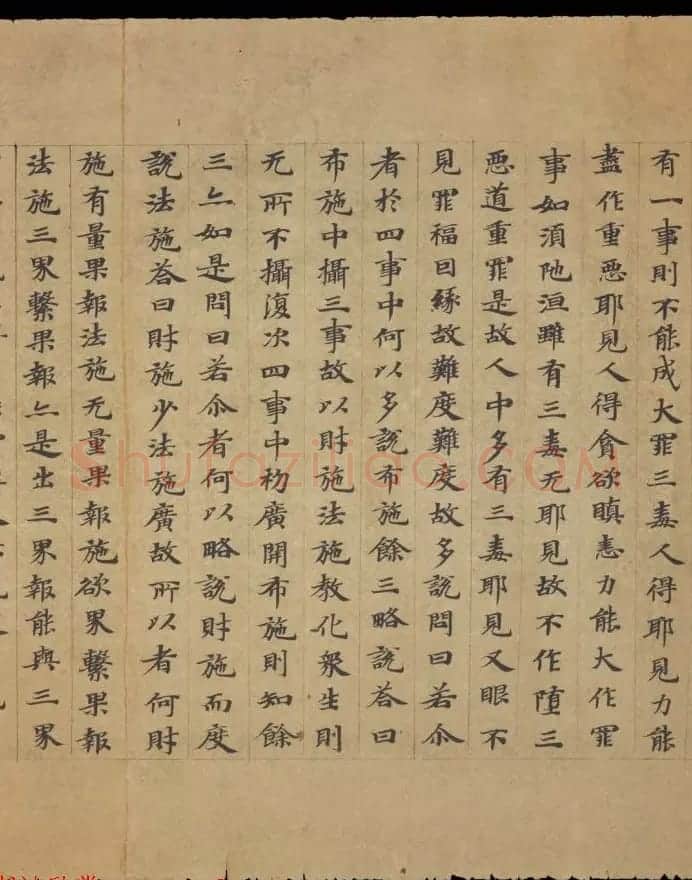 有一事則不能成大罪三毒人得耶見力能
盡作重惡耶見人得貪欲瞋恚力能大作罪
事如湏陁洹雖有三毒无耶見故不作墮三
惡道重罪是故人中多有三毒耶見又眼不
見罪福囙緣故難度難度故多說問曰若尒
者於四事中何以多說布施餘三略說荅曰
布施中攝三事故以財施法施教化衆生則
无所不攝復次四事中初廣開布施則知餘
三亦如是問曰若尒者何以略說財施而度
說法施荅曰財施少法施廣故所以者何財
施有量果報法施无量果報施欲界繫果報
法施三界繫果報亦是出三界報能與三界
Shufaziliao.COM